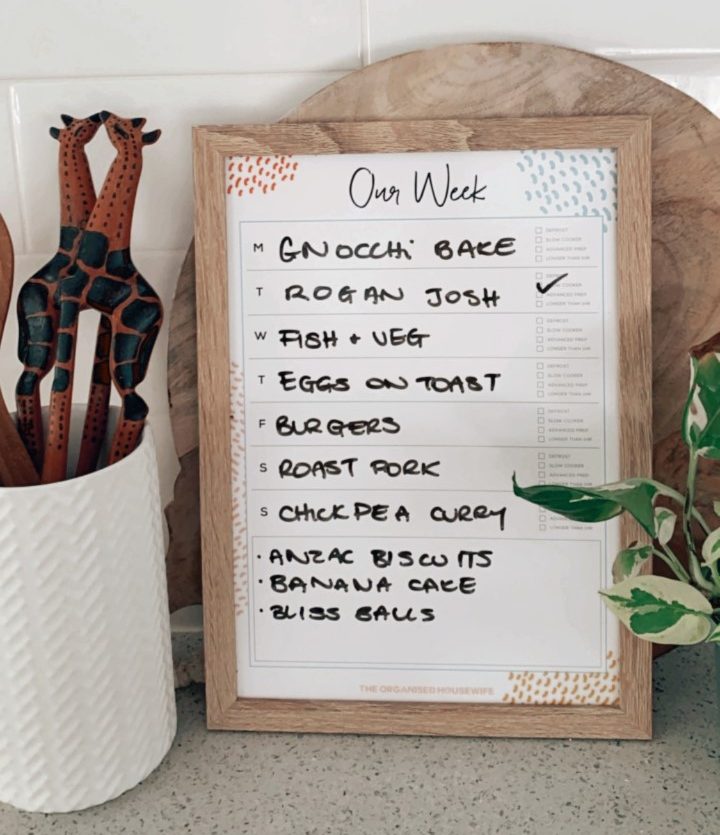 Our Week
M GNOCCHi BAKE
DEFROST
SLOW COOKER
ADVANCED PREP
LONGER THAN 1HR
T ROGAN JOSH
DEFROST
COOKER
ADVANCED PREP
LONGER THAN 1HR
W FISH + VEG
DEFROST
SLOW COOKER
ADVANCED PREP
LONGER THAN 1HR
T EGGS ON TOAST
DEFROST
SLOW COOKER
ADVANCED PREP
LONGER THAN 1HR
F BURGERS
DEFROST
SLOW COOKER
ADVANCED PREP
LONGER THAN 1HR
S ROAST PORK
DEFROST
SLOW COOKER
ADVANCED PREP
S CHICKPEA CURRY
LONGER THAN 1HR
· ANZAC BISCUITS
· BANANA CAKE
· BLISS BALLS
THE ORGANISED HOUSEWIFE